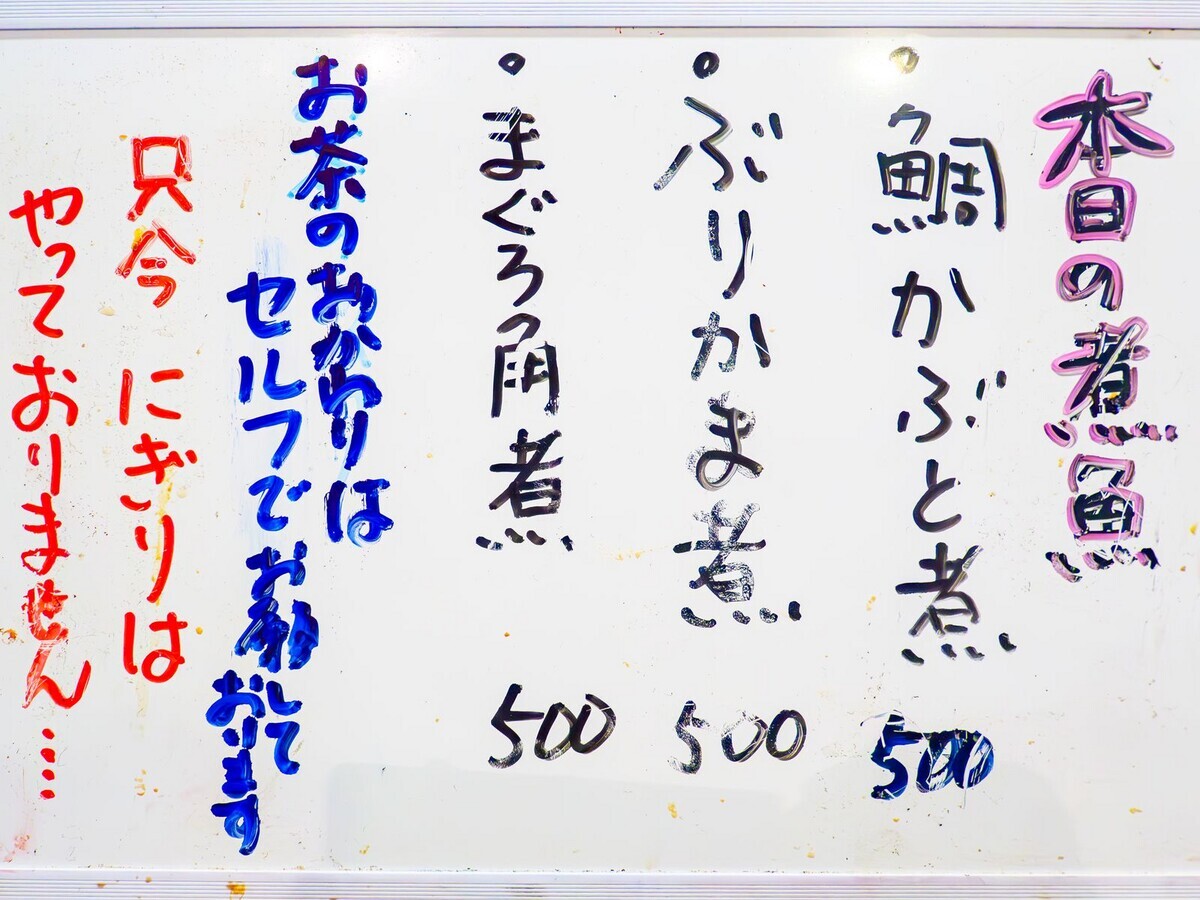 本日の煮魚
・鯛かぶと煮 500
・ぶりかま煮 500
・まぐろ角煮 500
お茶のおかわりは
セルフでお願して
おります
只今 にぎりは
やっておりません…